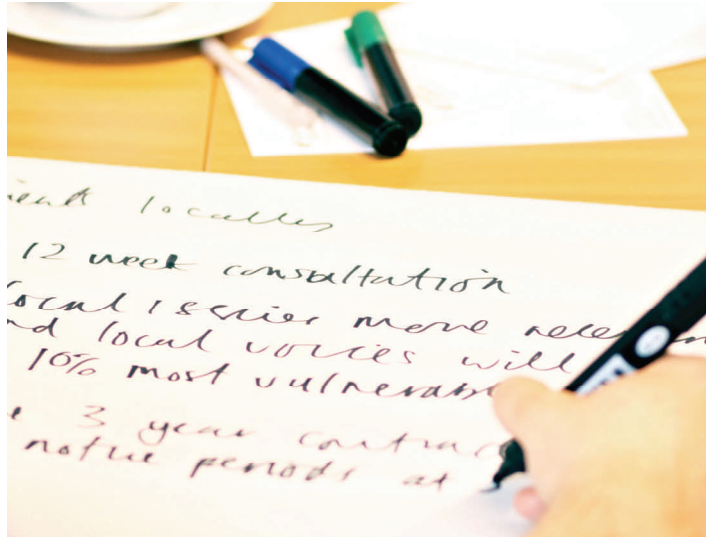 locally
12 week consultation
local issues more
and local voices will
10% most vulnerable
3 year contrac
notice periods at